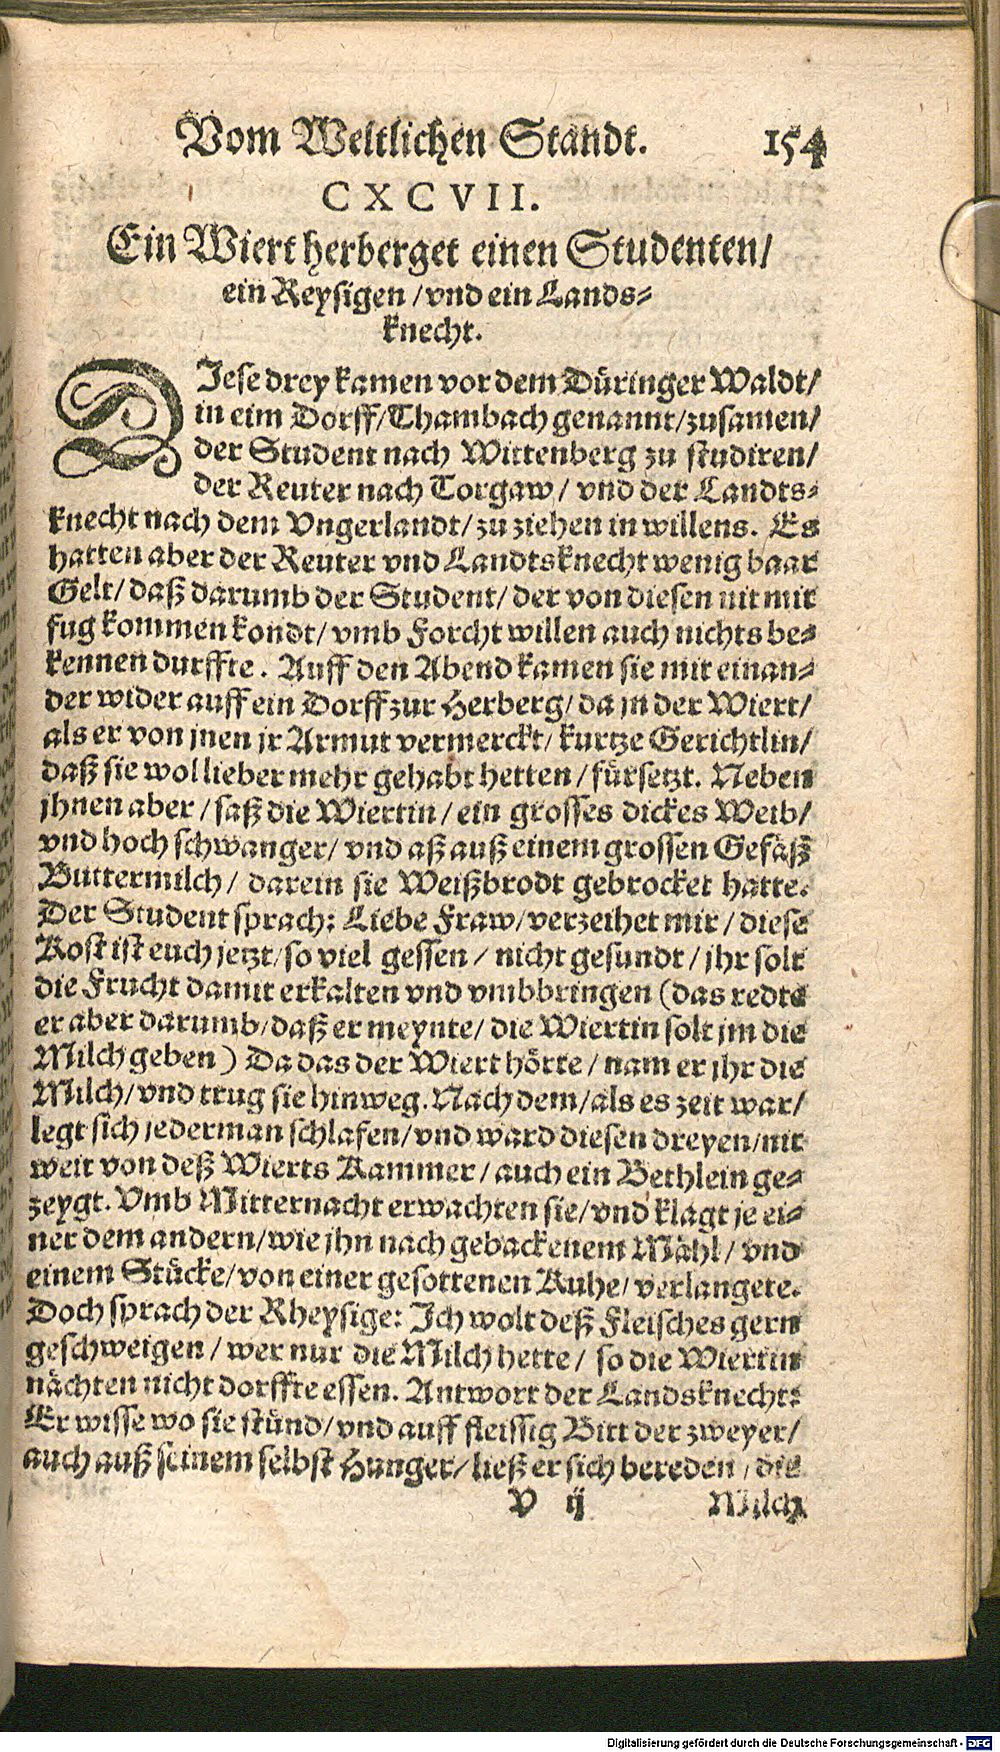 Vom Weltlichen Standt. 154
CXCVII.
Ein Wiert herberget einen Studenten/
ein Reysigen/vnd ein Lands⸗
knecht.
DIese drey kamen vor dem Düringer Waldt/
in eim Dorff/Thambach genannt/zusamen/
der Student nach Wittenberg zu studiren/
der Reuter nach Torgaw/ vnd der Landts⸗
knecht nach dem Vngerlandt/zu ziehen in willens. Es
hatten aber der Reuter vnd Landtsknecht wenig baar
Gelt/ daß darumb der Student/ der von diesen nit mit
fug kommen kondt/ vmb Forcht willen auch nichts be⸗
kennen durffte. Auff den Abend kamen sie mit einan⸗
der wider auff ein Dorff zur Herberg/ da jn der Wiert/
als er von jnen jr Armut vermerckt/ kurtze Gerichtlin/
daß sie wol lieber mehr gehabt hetten/ fürsetzt. Neben
jhnen aber/ saß die Wiertin/ ein grosses dickes Weib/
vnd hoch schwanger/ vnd aß auß einem grossen Gefäß
Buttermilch/ darein sie Weißbrodt gebrocket hatte.
Der Student sprach: Liebe Fraw/verzeihet mir/ diese
Kost ist euch jetzt/so viel gessen/ nicht gesundt/ jhr solt
die Frucht damit erkalten vnd vmbbringen (das redte
er aber darumb/daß er meynte/ die Wiertin solt jm die
Milch geben) Da das der Wiert hörte/ nam er jhr die
Milch/vnd trug sie hinweg. Nach dem/als es zeit war/
legt sich jederman schlafen/vnd ward diesen dreyen/nit
weit von deß Wierts Kammer/ auch ein Bethlein ge⸗
zeygt. Vmb Mitternacht erwachten sie/vnd klagt je ei⸗
ner dem andern/wie jhn nach gebackenem Mähl/ vnd
einem Stücke/von einer gesottenen Kuhe/ verlangete.
Doch sprach der Rheysige: Ich wolt deß Fleisches gern
geschweigen/ wer nur die Milch hette/ so die Wiertin
nächten nicht dorffte essen. Antwort der Landsknecht:
Er wisse wo sie stünd/vnd auff fleissig Bitt der zweyer/
auch auß seinem selbst Hunger/ ließ er sich bereden/ die
V ij Milch
Digitalisierung gefördert durch die Deutsche Forschungsgemeinschaft - DFG